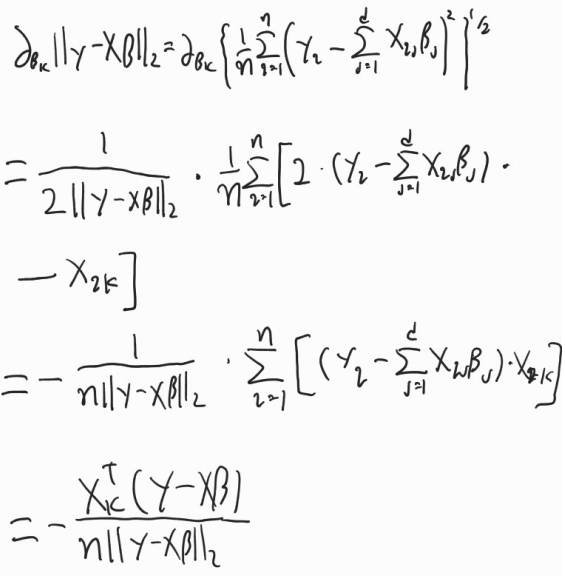 ∂_{β_k} ||Y-Xβ||_2 = ∂_{β_k} { 1/n ∑_{i=1}^{n} (Y_i - ∑_{j=1}^{d} X_{ij} β_j)^2 }^{1/2}
= 1/(2 ||Y-Xβ||_2) · 1/n ∑_{i=1}^{n} [ 2 · (Y_i - ∑_{j=1}^{d} X_{ij} β_j) ·
- X_{ik} ]
= - 1/(n ||Y-Xβ||_2) · ∑_{i=1}^{n} [ (Y_i - ∑_{j=1}^{d} X_{ij} β_j) · X_{ik} ]
= - X_k^T (Y-Xβ) / (n ||Y-Xβ||_2)